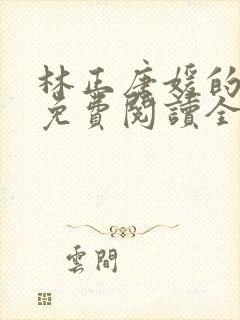 林正唐媛的
免費閱讀全
雲間